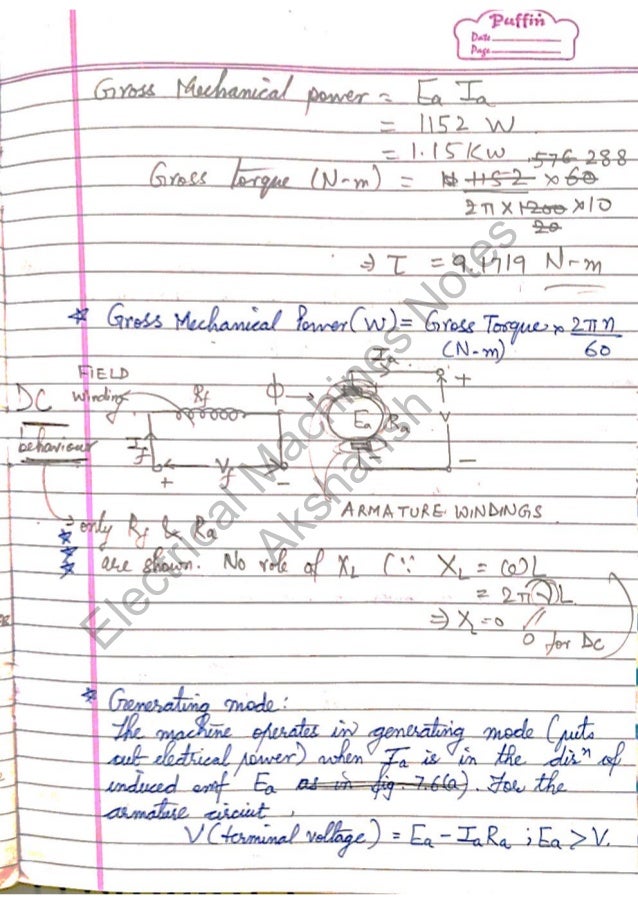 Puffin
Date
Page
Gross Mechanical power = Ea Ia
= 1152 W
= 1.15 KW
576 288
Gross torque (N-m) = 1152 × 60
2π × 1200 × 10
20
⇒ τ = 9.1719 N-m
* Gross Mechanical Power (W) = Gross Torque × 2πn
(N-m) 60
FIELD
winding
Rf
ϕ
Ia
+
DC
behaviour
If
Vf
+
-
Ea
Ra
V
-
ARMATURE WINDINGS
→ only Rf & Ra
are shown. No role of XL (∵ XL = ωL
= 2πνL
⇒ XL = 0
0 for DC
* Generating mode:
The machine operates in generating mode (puts
out electrical power) when Ia is in the dirⁿ of
induced emf Ea as in fig. 7.6(a). For the
armature circuit,
V (terminal voltage) = Ea - IaRa ; Ea > V.
Electrical Machines Notes
Akshansh